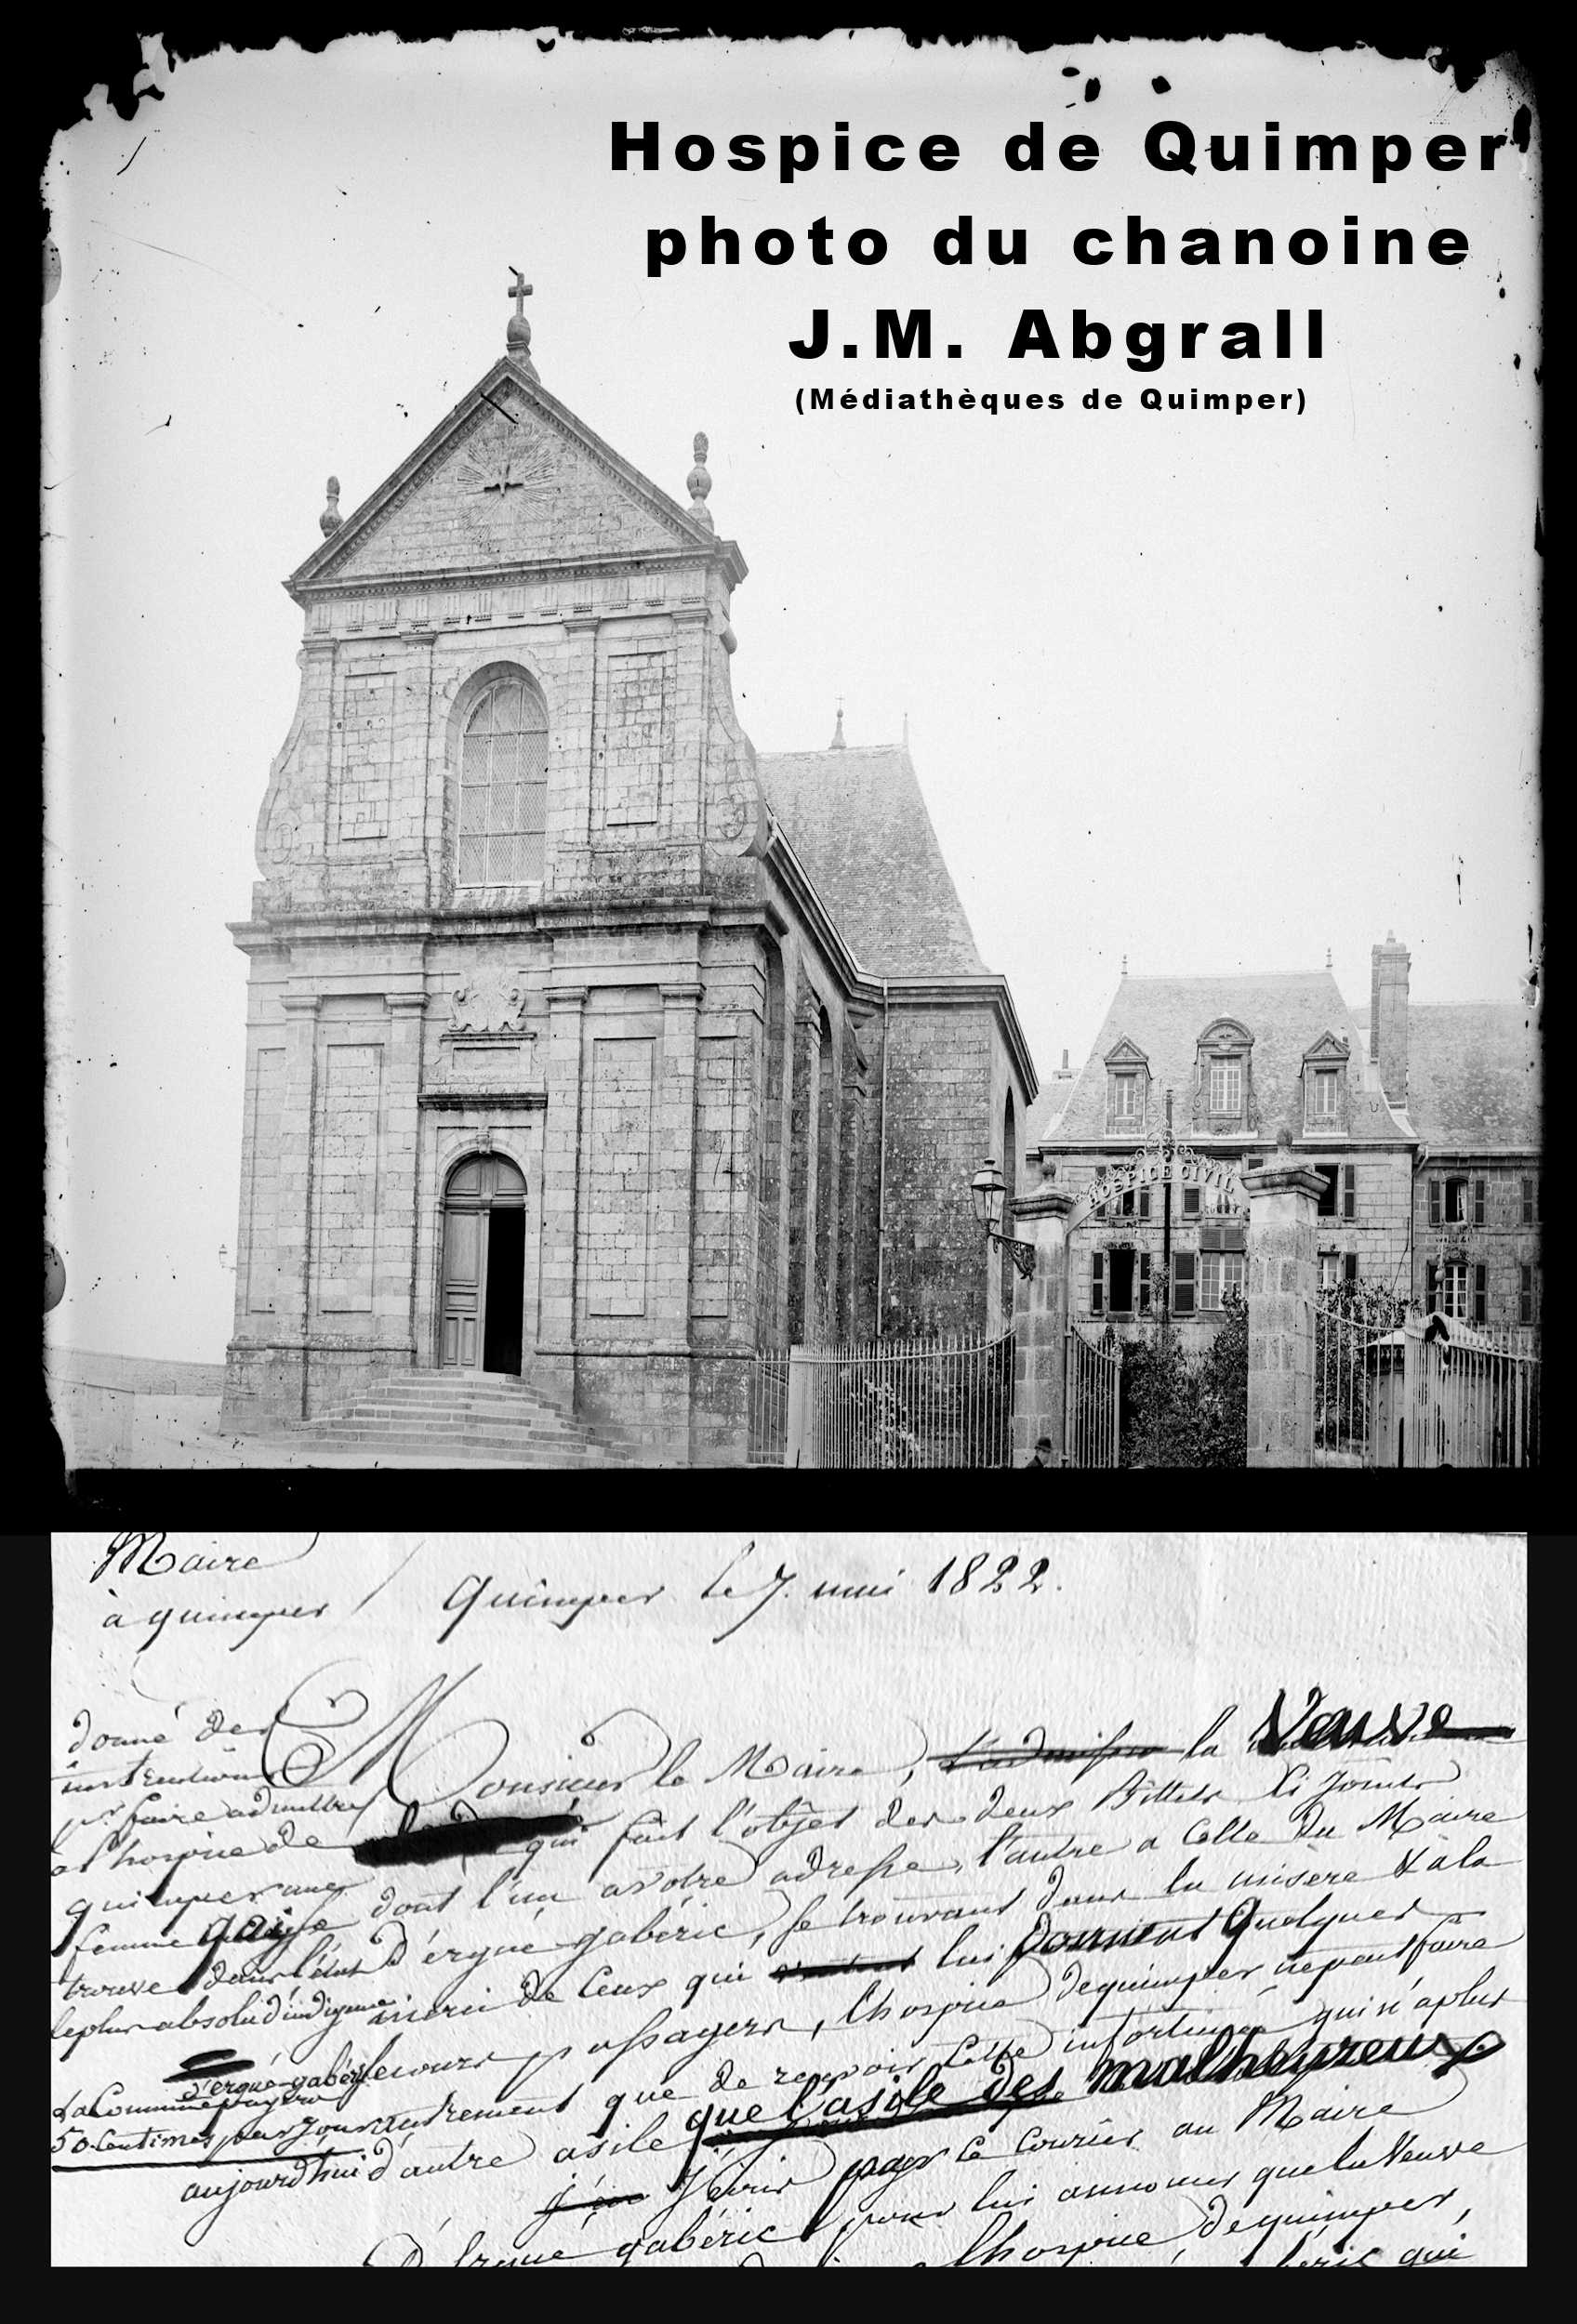 Hospice de Quimper
photo du chanoine
J.M. Abgrall
(Médiathèques de Quimper)
HOSPICE CIVIL
Maire
à quimper
Quimper le 7. mai 1822.
donné des
instructions
pr. faire admettre
a l'hospice de
quimper une
femme
trouve dans l'état
le plus absolu d'indigence
La Commune d'ergué-gabéric payera
50. Centimes par jour
Monsieur le Maire, la Veuve
qui fait l'objet des deux Billets Ci Joints
dont l'un a votre adresse, l'autre a Celle du Maire
D'ergué gabéric, se trouvant dans la misere & a la
merci de Ceux qui lui donnent Quelques
secours passagers, l'hospice de quimper ne peut faire
autrement que de recevoir Cette infortunée qui n'a plus
aujourd'hui d'autre asile que l'asile des malheureux
J'écris par ce Courier au Maire
D'Ergué gabéric pour lui annoncer que la Veuve
l'hospice de quimper,
qui